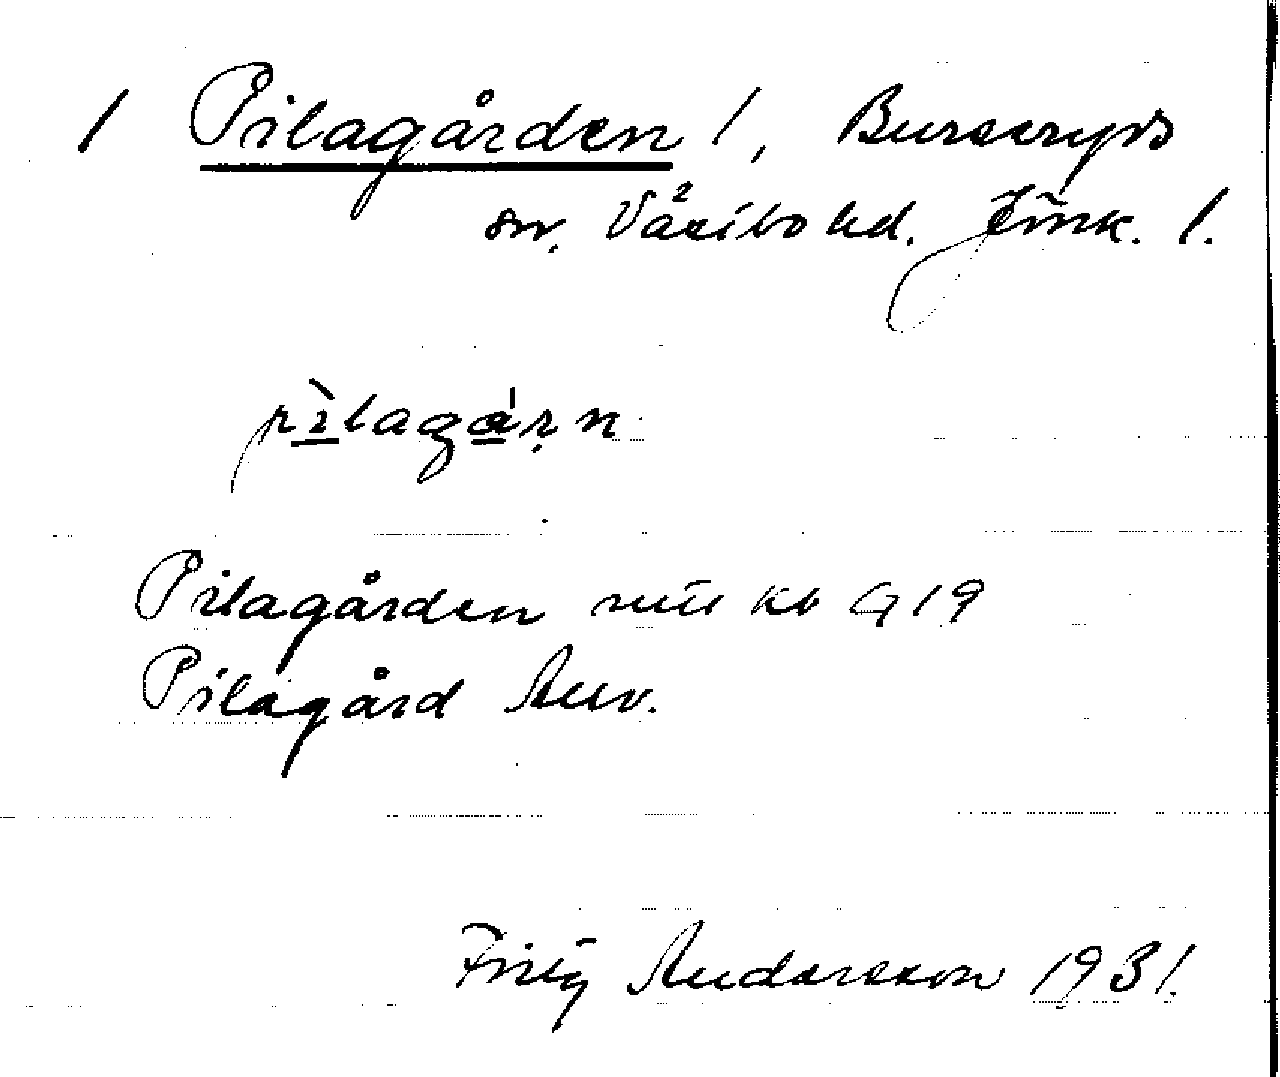 1 Pilagården 1, Burseryds
sn. Västbo hd. Jönk. l.
pìlagárn
Pilagården kb G 19
Pilagård Anv.
Fritz Andersson 1931.